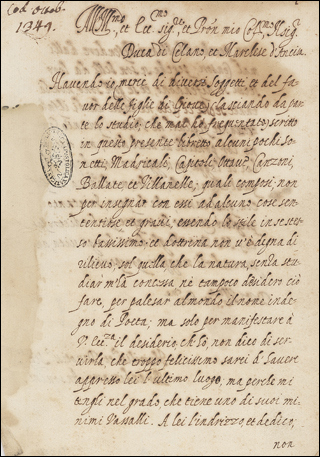 Cod. Ottob.
1344.
Ill.mo et Ecc.mo sig.re, e Prõn mio Col.mo Il sig.
Duca di Celano, et Marchese d'
Havendo io merce di diversi soggetti et del fa
vor delle figlie di Giove (lasciando da par
te lo studio, che mai ho frequentato) scritto
in questo presente libretto alcuni pochi So
netti, Madricali, Capitoli, Ottav., Canzoni,
Ballate, et Villanelle, quali composi; non
per insegnar con essi ad alcuno cose sen
centiose et gravi, essendo lo stile in se stes
so bassissimo: et dottrina non v'è degna di
rilievo, sol quella che la natura, senza stu
diar m'ha concessa né tampoco desidero ciò
fare, per palesar al mondo il nome inde
gno di Poeta; ma solo per manifestare à
V. Ecc.a il desiderio, ch'ho, non dico di ser
virla, che troppo felicissimo sarei d'havere
appresso lei l'ultimo luogo, ma perche mi
tenghi nel grado, che tiene uno di suoi mi
nimi Vassalli. A lei l'indrizzo, et dedico,
non